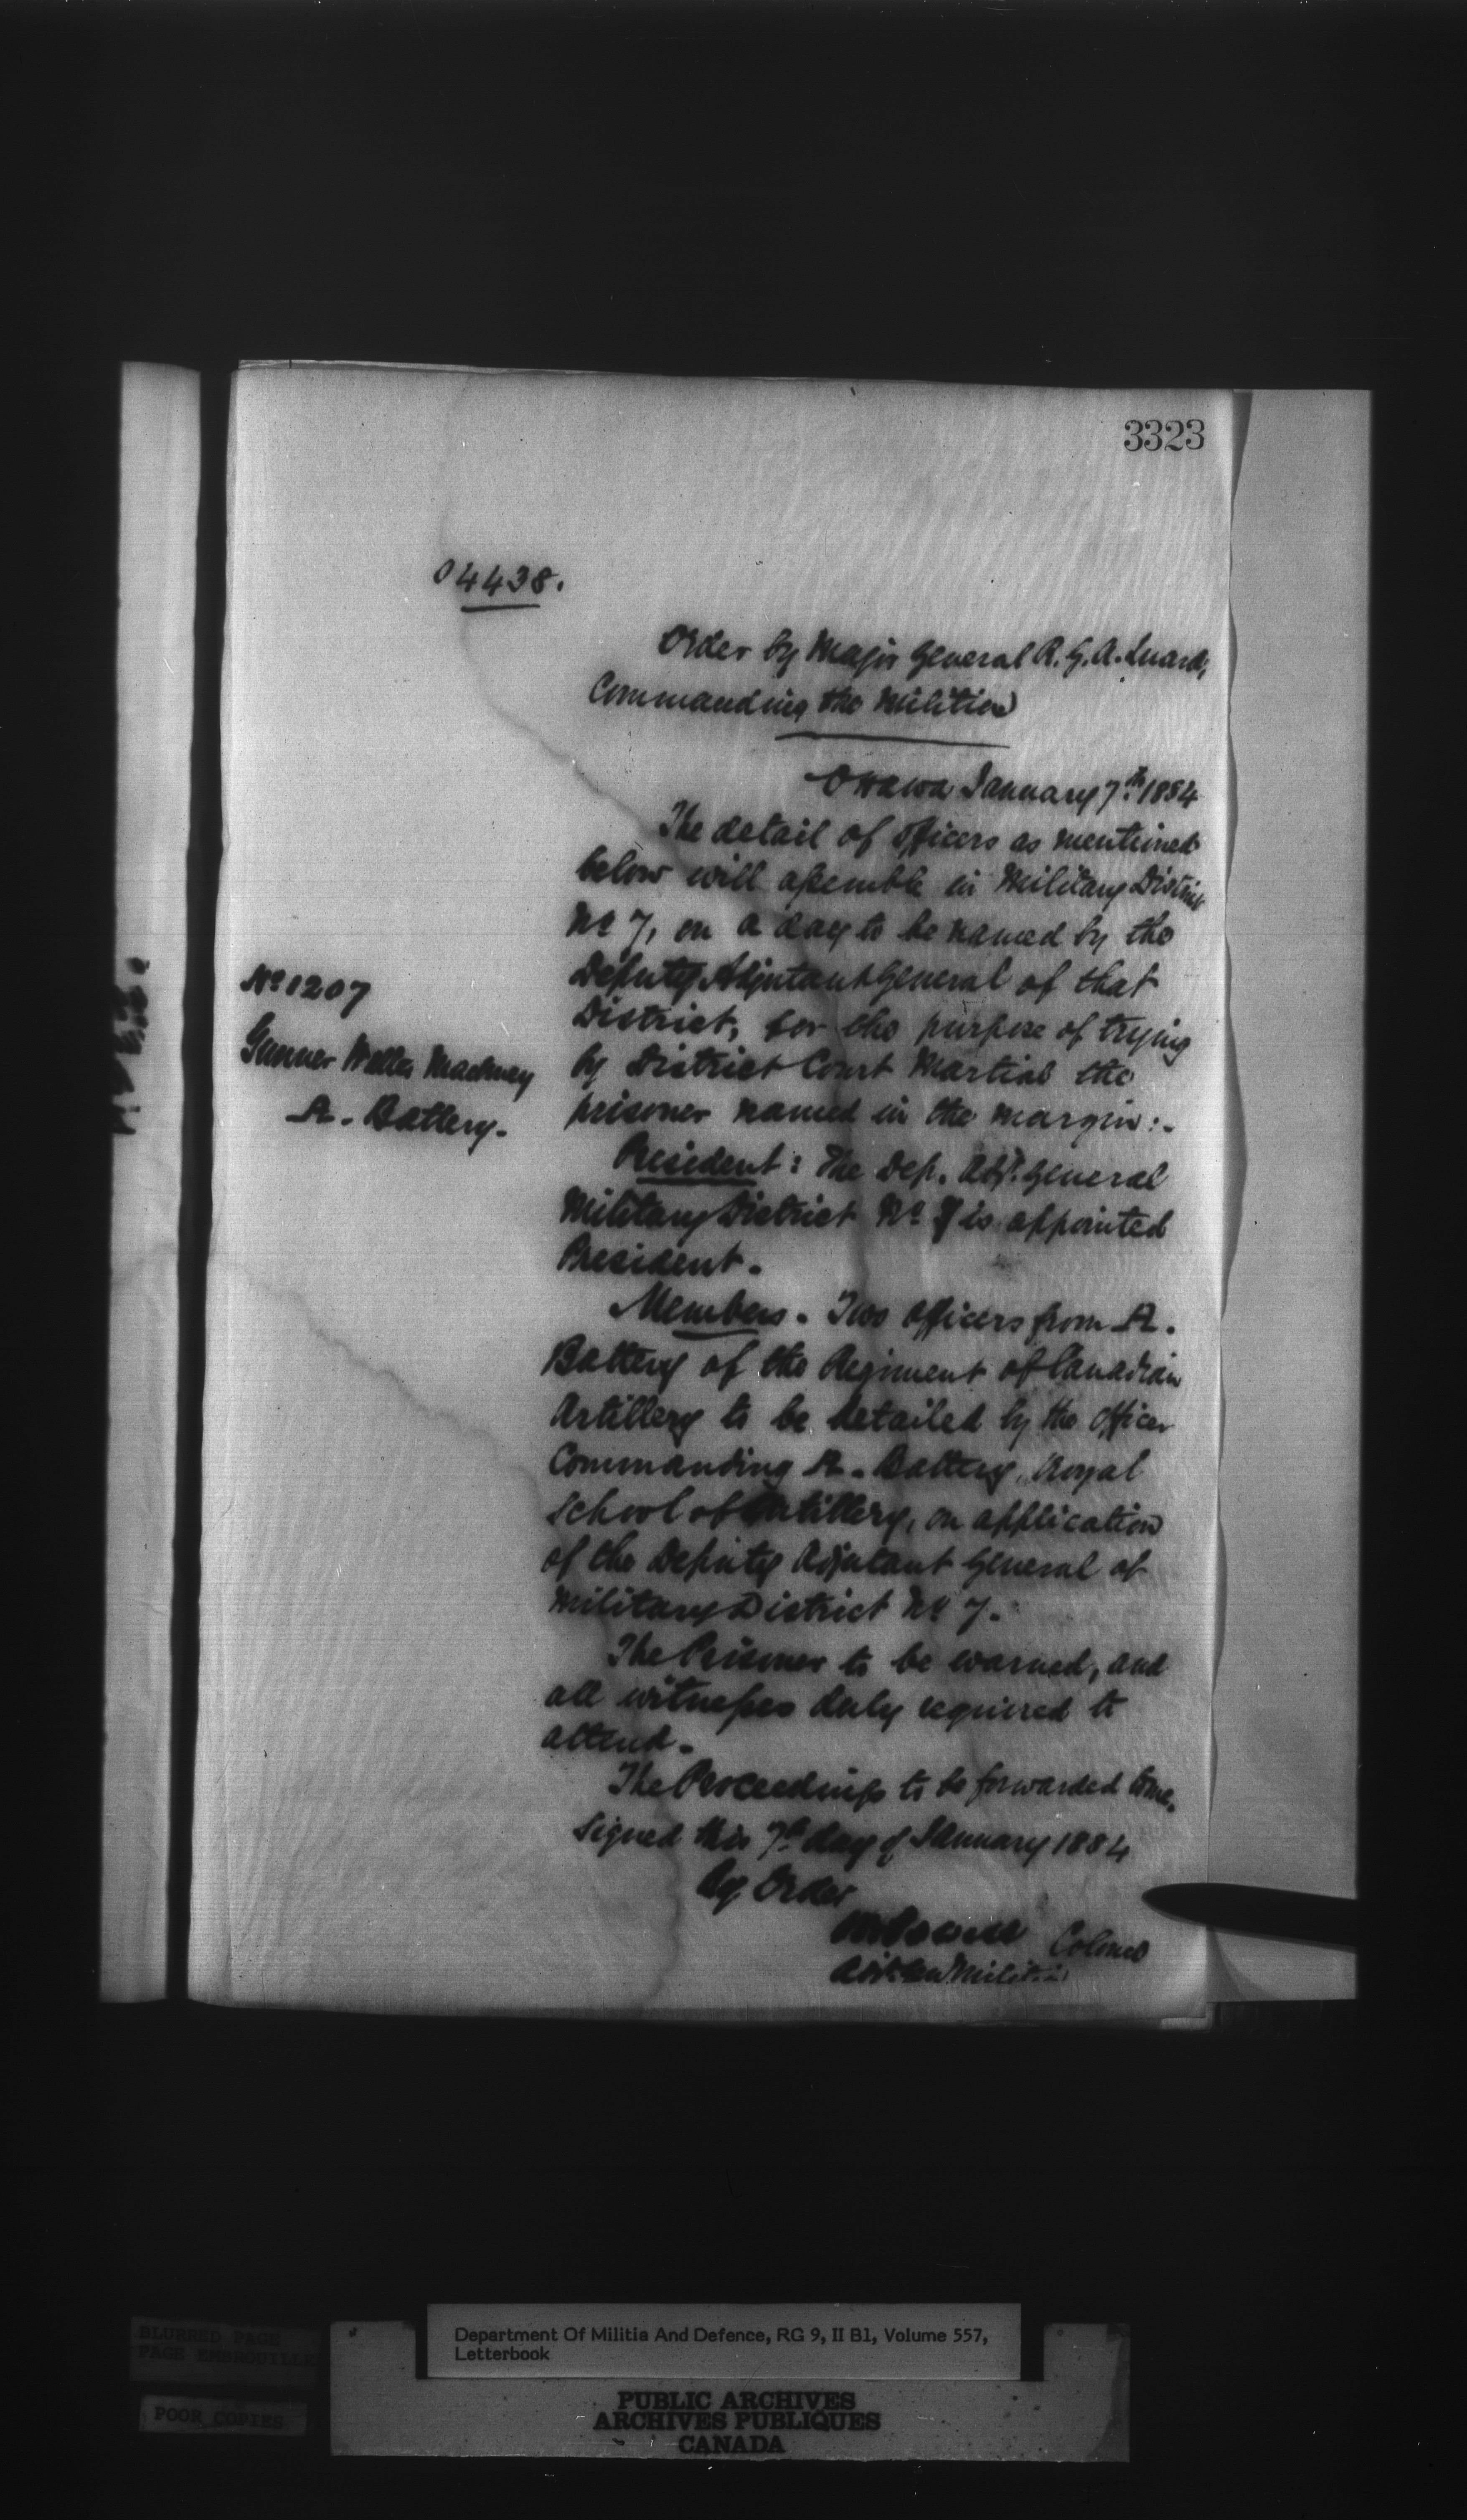 3323
04438.
Order by Major General R. G. A. Luard,
Commanding the Militia
Ottawa January 7th. 1884
The detail of Officers as mentioned
below will assemble in Military District
No 7, on a day to be named by the
Deputy Adjutant General of that
District, for the purpose of trying
by District Court Martial the
prisoner named in the margin:-
No 1207
Gunner Walter
A. Battery.
President: The Dep. Adj. General
Military District No 7 is appointed
President.
Members. Two Officers from A.
Battery of the Regiment of Canadian
Artillery to be detailed by the Officer
Commanding A. Battery, Royal
School of Artillery, on application
of the Deputy Adjutant General of
Military District No 7.
The Prisoner to be warned, and
all witnesses duly required to
attend.
The Proceedings to be forwarded to me.
Signed this 7th day of January 1884
By Order
Powell Colonel
Militia
BLURRED PAGE
PAGE EMBROUILLEE
POOR COPIES
Department Of Militia And Defence, RG 9, II B1, Volume 557,
Letterbook
PUBLIC ARCHIVES
ARCHIVES PUBLIQUES
CANADA